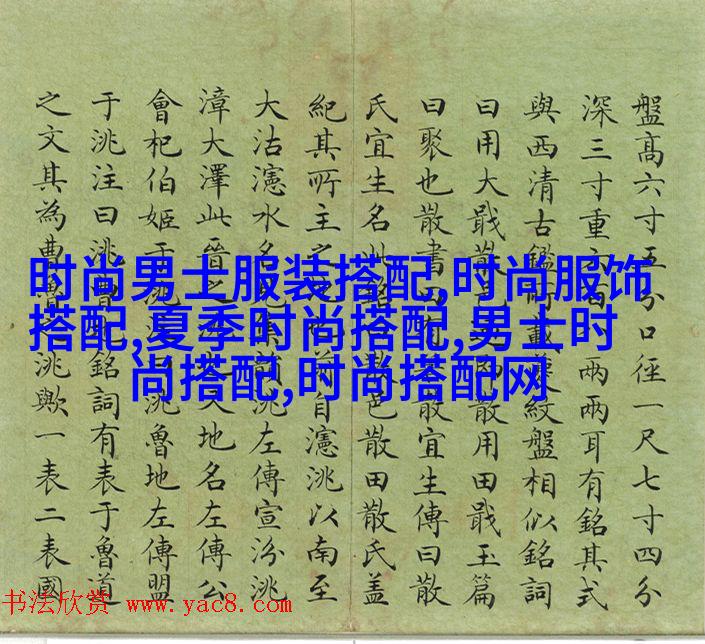 盤高六寸五分口徑一尺七寸四分
深三寸重兩兩耳有銘其式
與西清古鑑所載紋盤相似銘詞
曰用大戢散用田戢玉篇
曰聚也散書散宜生傳曰散
氏宜生名此銘邑散田散氏蓋
紀其所主之自瀗洮以南至
大沽瀗水名洮左傳宣汾洮
漳大澤此晉之大地名左傳公
會杞伯姬于洮洮魯地左傳盟
于洮注曰洮曹地銘詞有表于魯道
之文其為曹魯之洮歟一表二表國
时尚男士服装搭配,时尚服饰
搭配,夏季时尚搭配,男士时
尚搭配,时尚搭配网
书法欣赏 www.yac8.com